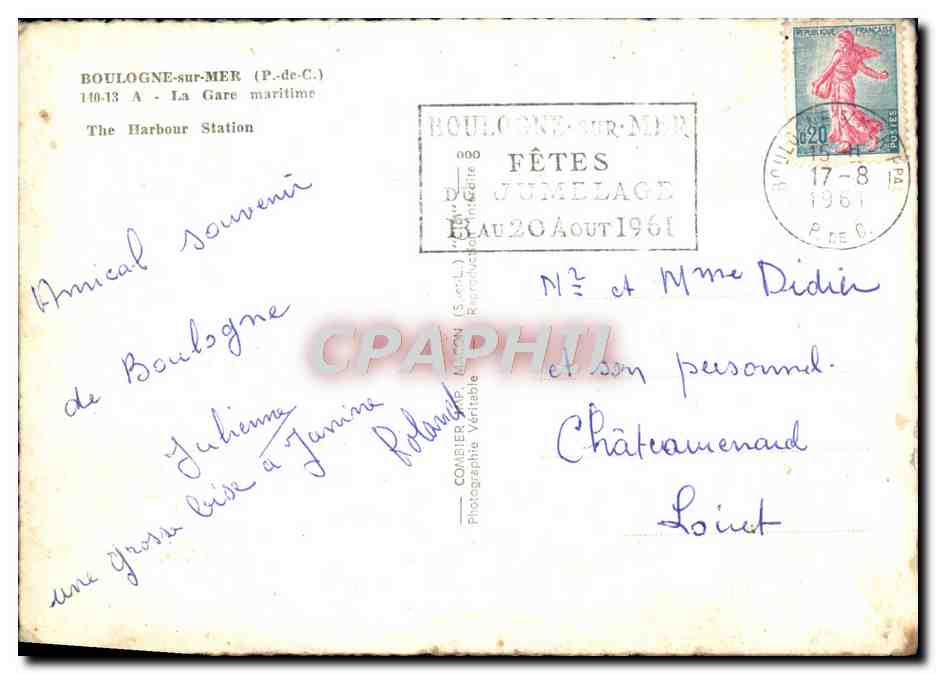 BOULOGNE-sur-MER (P.-de-C.)
140-13 A - La Gare maritime
The Harbour Station
BOULOGNE-SUR-MER
FÊTES
DU JUMELAGE
13 AU 20 AOUT 1961
REPUBLIQUE FRANÇAISE
0,20
POSTES
BOULOGNE
PPAL
15 H
17-8
1961
P. DE C.
Amical souvenir
de Boulogne
Julienne
une grosse bise à Janine
Roland
COMBIER IMP. MACON (S.-et-L.)
Photographie Véritable - Reproduction Interdite
Mr et Mme Didier
et son personnel.
Châteaurenard
Loiret
CPAPHIL